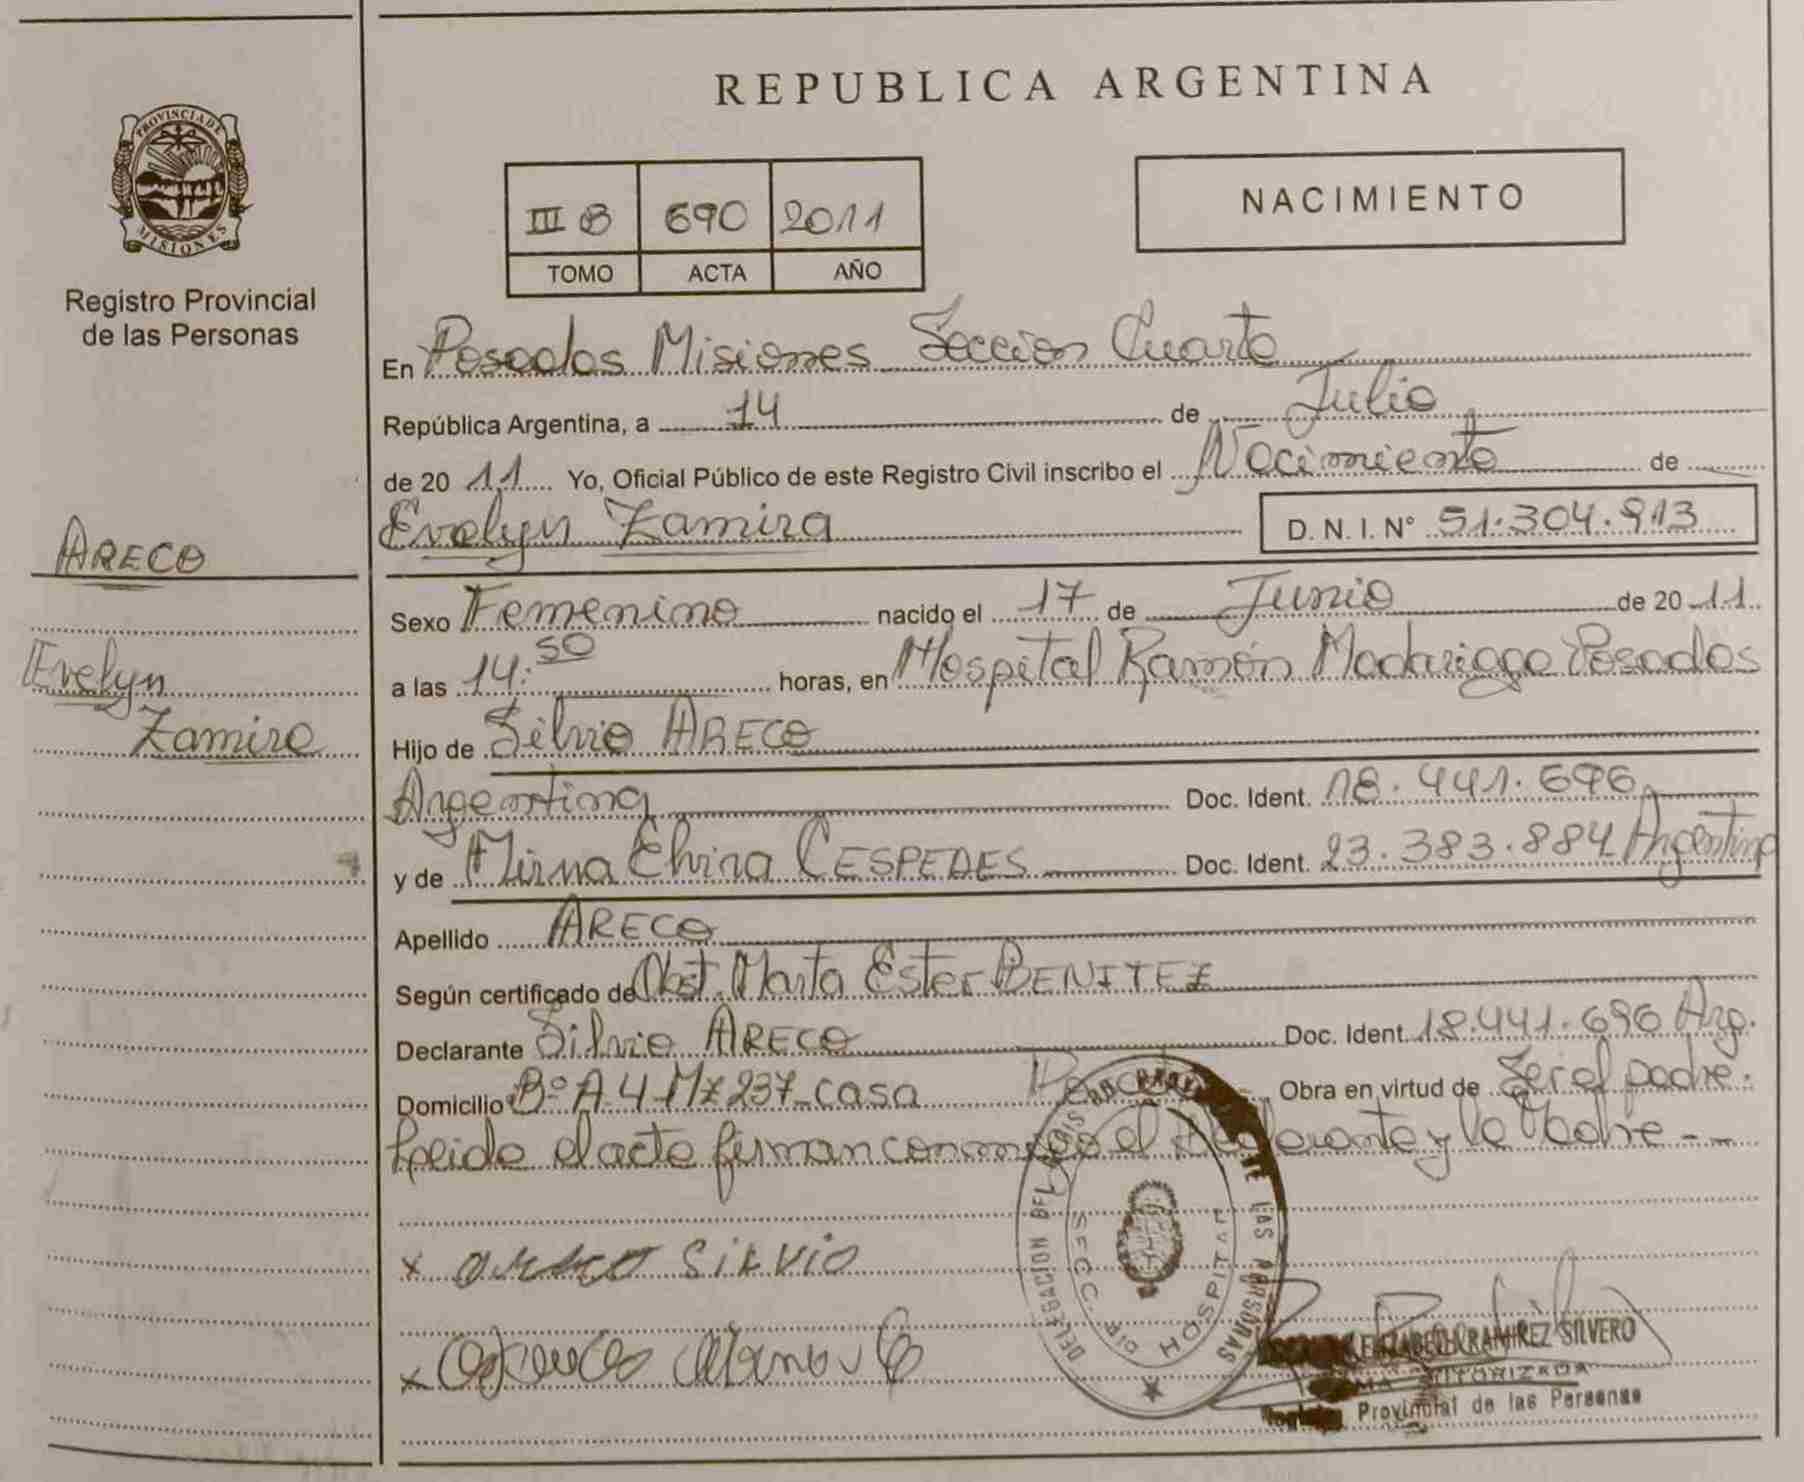 REPUBLICA ARGENTINA
PROVINCIA DE
MISIONES
Registro Provincial
de las Personas
III B 690 2011
TOMO ACTA AÑO
NACIMIENTO
En Posadas Misiones Sección Cuarta
República Argentina, a 14 de Julio
de 20 11 Yo, Oficial Público de este Registro Civil inscribo el Nacimiento de
Evelyn Zamira D. N. I. N° 51.304.913
ARECO
Evelyn
Zamira
Sexo Femenino nacido el 17 de Junio de 20 11
a las 14:50 horas, en Hospital Ramón Madariaga Posadas
Hijo de Silvio ARECO
Argentina Doc. Ident. 18.441.696
y de Mirna Elvira CESPEDES Doc. Ident. 23.383.884 Argentina
Apellido ARECO
Según certificado de Obst. Marta Ester BENITEZ
Declarante Silvio ARECO Doc. Ident. 18.441.696 Arg.
Domicilio Bº A-4-Mz 237-casa Obra en virtud de Ser el padre.
Leida el acta firman conmigo el declarante y la Madre - -
x Areco SILVIO
x
DELEGACION DEL REGISTRO PROVINCIAL DE LAS PERSONAS
SECC. DE HOSPITAL
ELIZABETH RAMIREZ SILVERO
FIRMA AUTORIZADA
Registro Provincial de las Personas